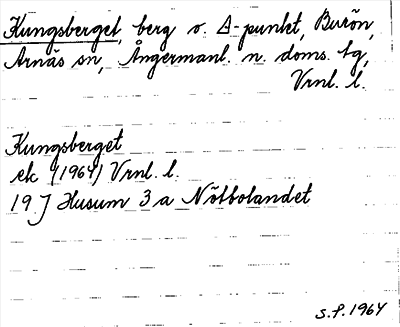 Kungsberget, berg o. Δ-punkt, Burön,
Arnäs sn, Ångermanl. n. doms. tg,
Vrnl. l.
Kungsberget
ek (1964) Vrnl. l.
19 J Husum 3 a Nötbolandet
S.P. 1964